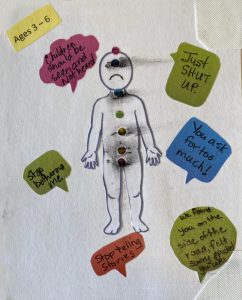 Ages 3-6
Children
Should be
seen and
Not heard
Just
SHUT
UP
You ask
for too
much!
Stop
bothering
me
Stop telling
stories
We found
you on the
side of the
road, felt
sorry